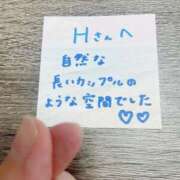 Hさんへ
自然な
長いカップルの
ような空間でした
♡♡